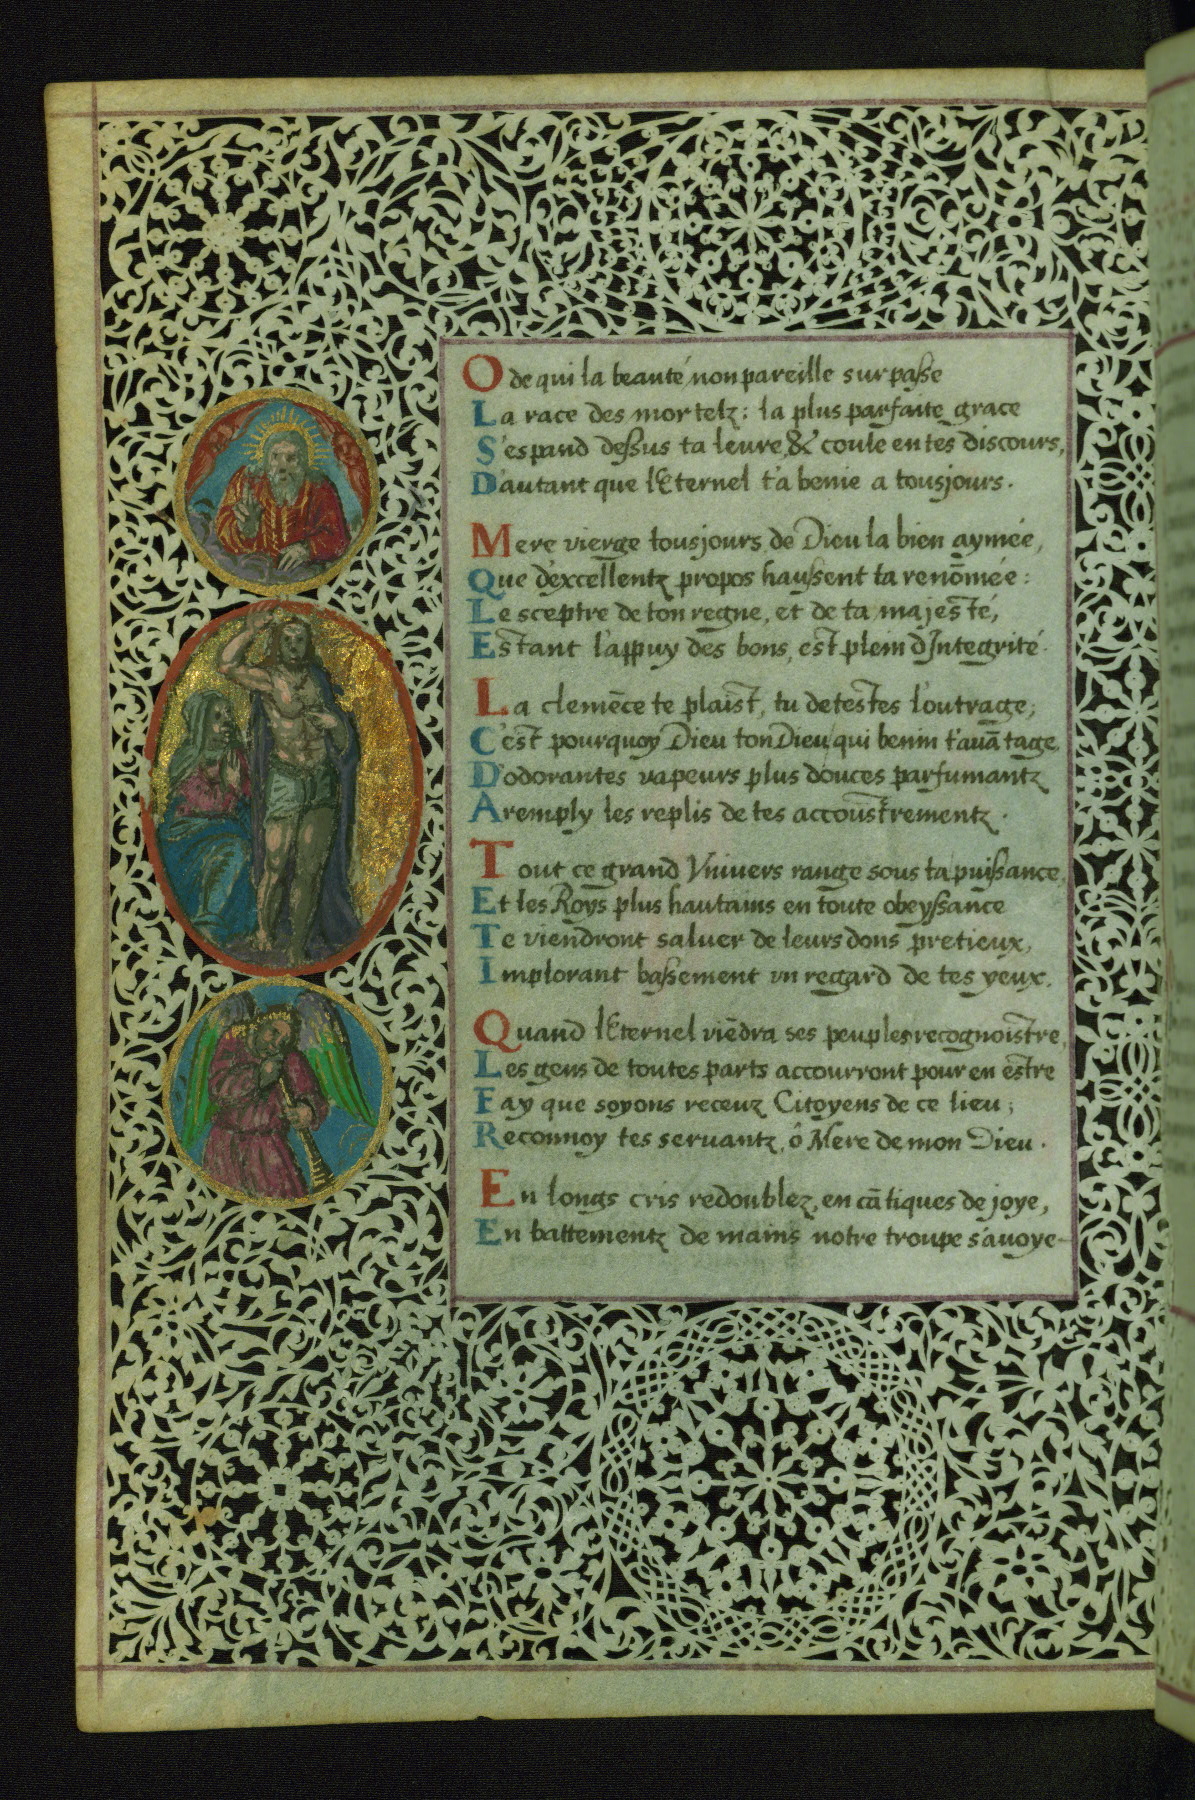 O de qui la beauté nonpareille surpaße
La race des mortelz: la plus parfaite grace
S'espand deßus ta leure, & coule en tes discours,
D'autant que l'Eternel t'a benie a tousjours.
Mere vierge tousjours de Dieu la bien aymée,
Que d'excellentz propos haußent ta renōmée:
Le sceptre de ton regne, et de ta majesté,
Estant l'appuy des bons, est plein d'Integrité.
La clemēce te plaist, tu detestes l'outrage;
C'est pourquoy Dieu ton Dieu qui benin t'auātage,
D'odorantes vapeurs plus douces parfumantz
A remply les replis de tes accoustrementz.
Tout ce grand Vniuers range sous ta puißance,
Et les Roys plus hautains en toute obeyßance
Te viendront saluer de leurs dons pretieux,
Implorant baßement vn regard de tes yeux.
Quand l'Eternel viēdra ses peuples recognoistre,
Les gens de toutes parts accourront pour en estre
Fay que soyons receuz Citoyens de ce lieu;
Reconnoy tes seruantz, ô Mere de mon Dieu.
En longs cris redoublez, en cātiques de joye,
En battementz de mains notre troupe s'auoye